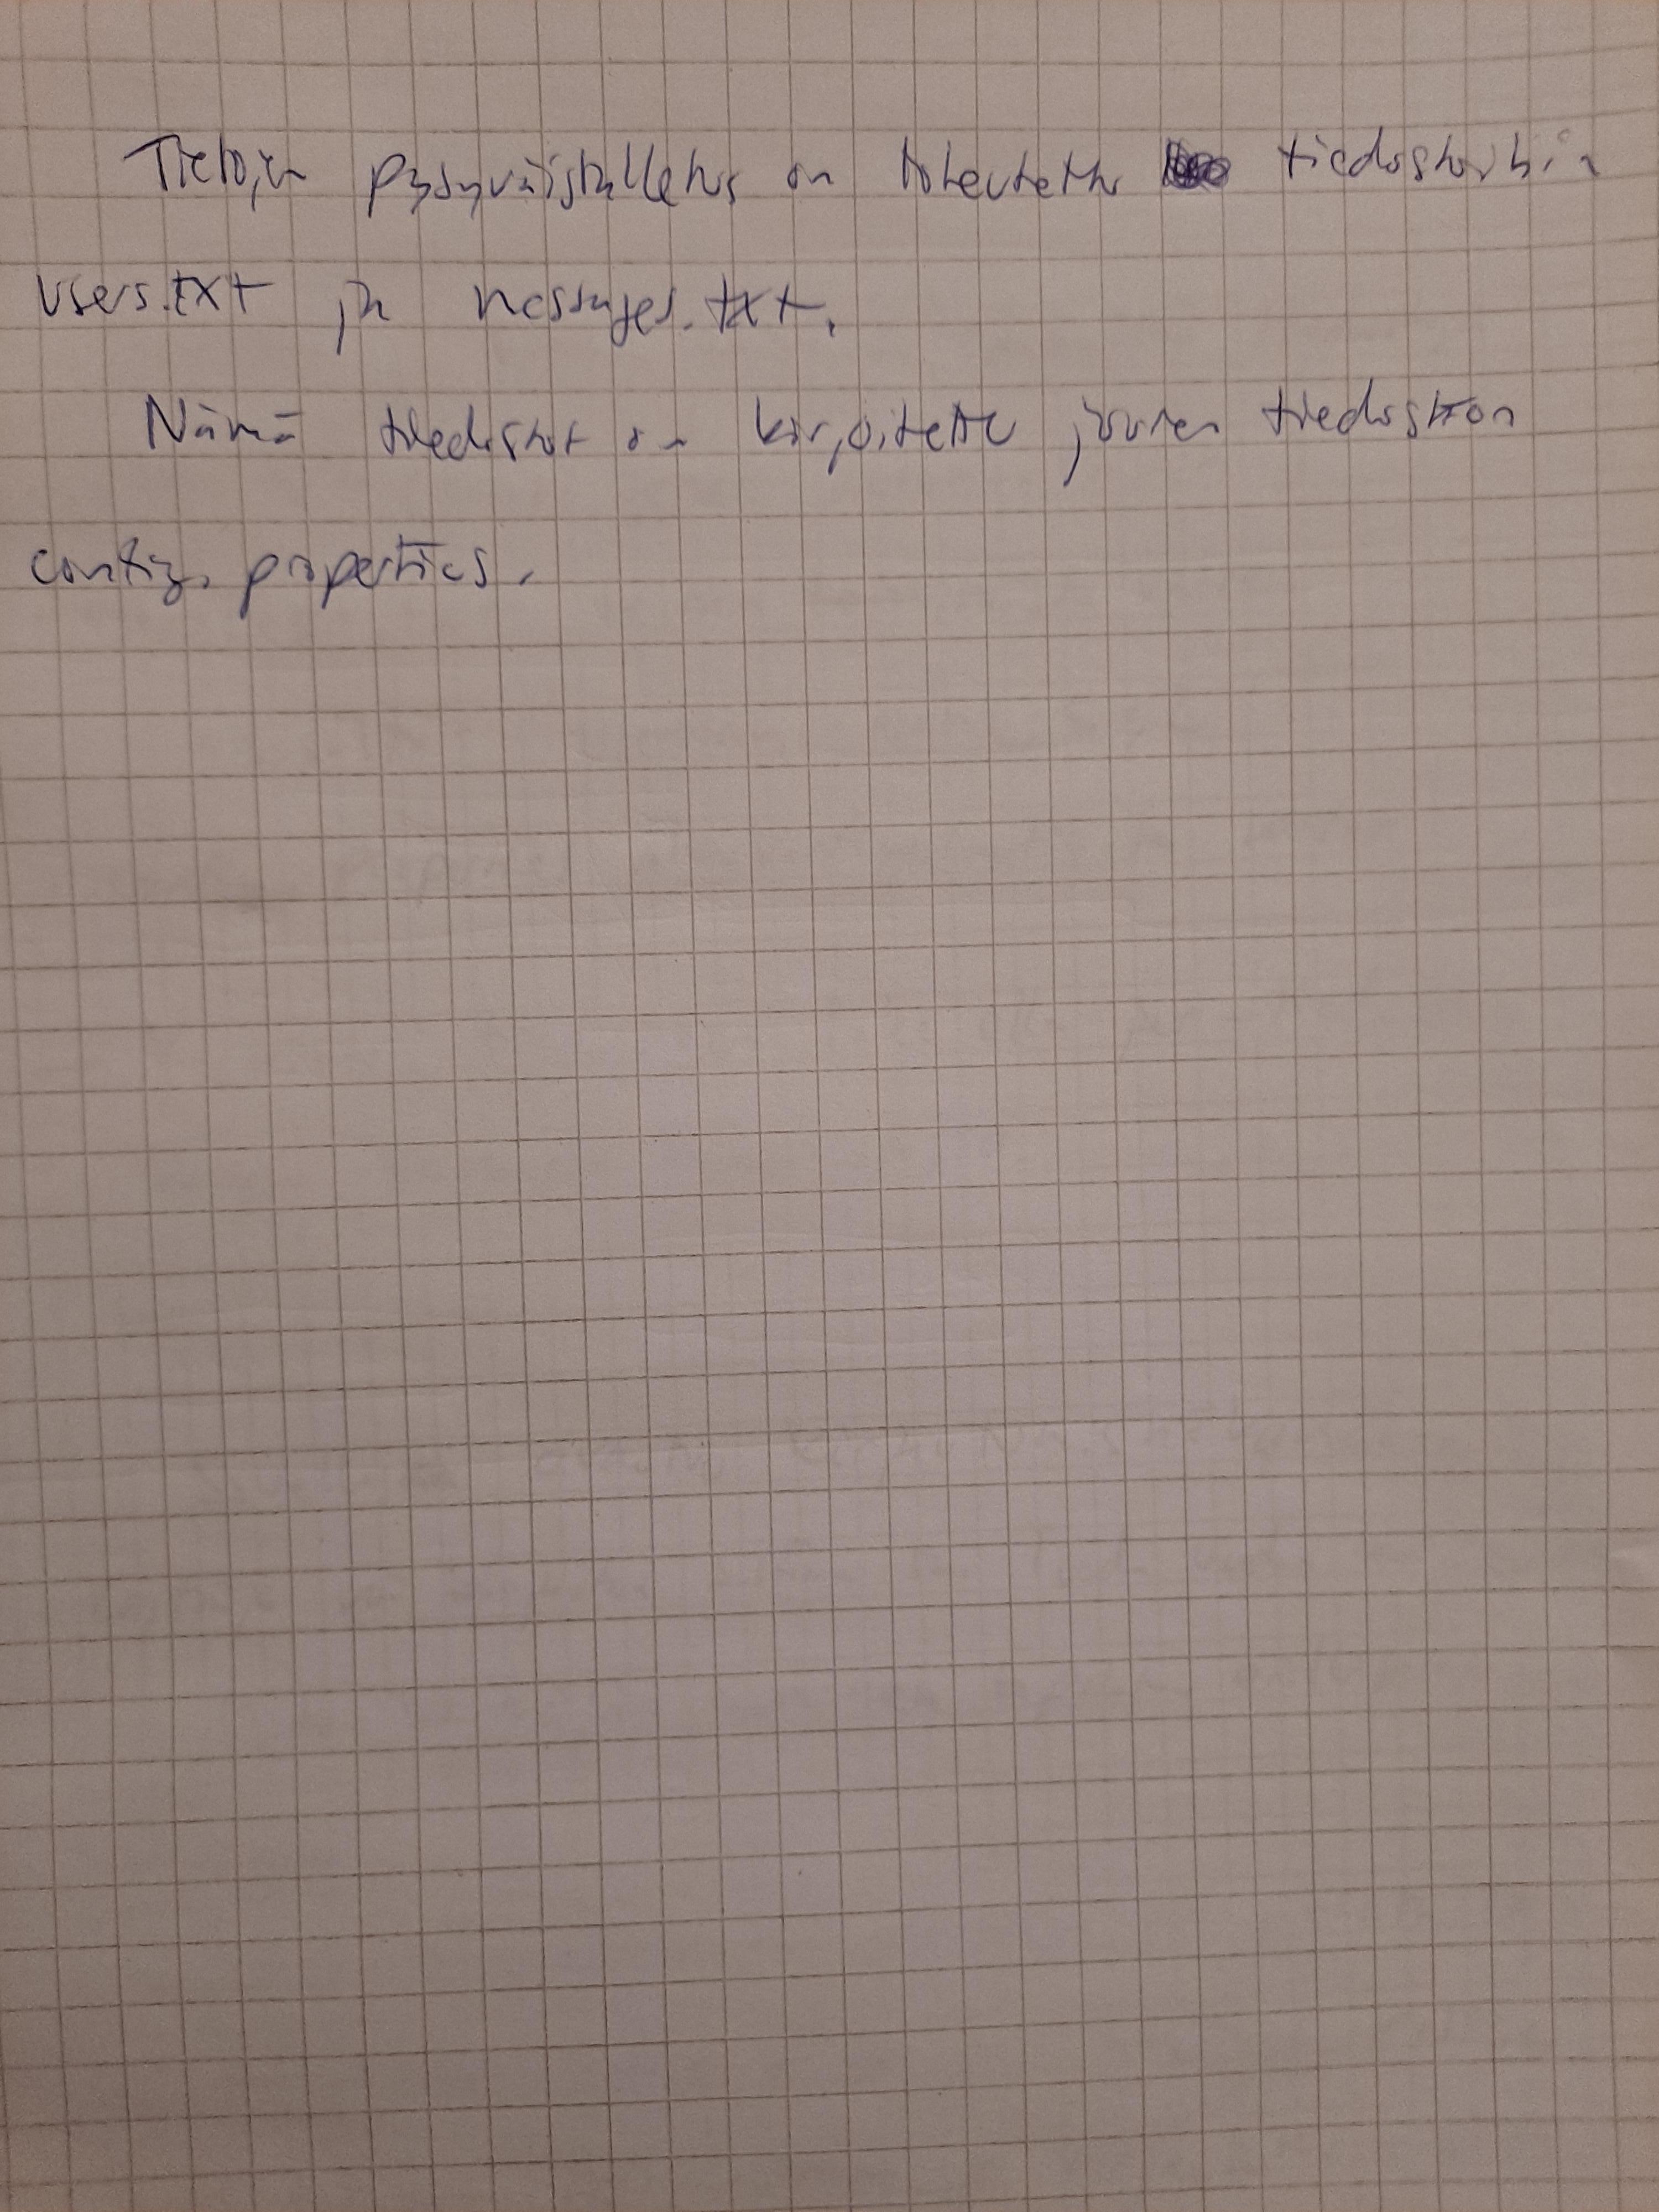 Tietojen pysyväistalletus on toteutettu tiedostoihin
users.txt ja messages.txt.
Nämä tiedostot on kirjoitettu tiedostoon
config.properties.